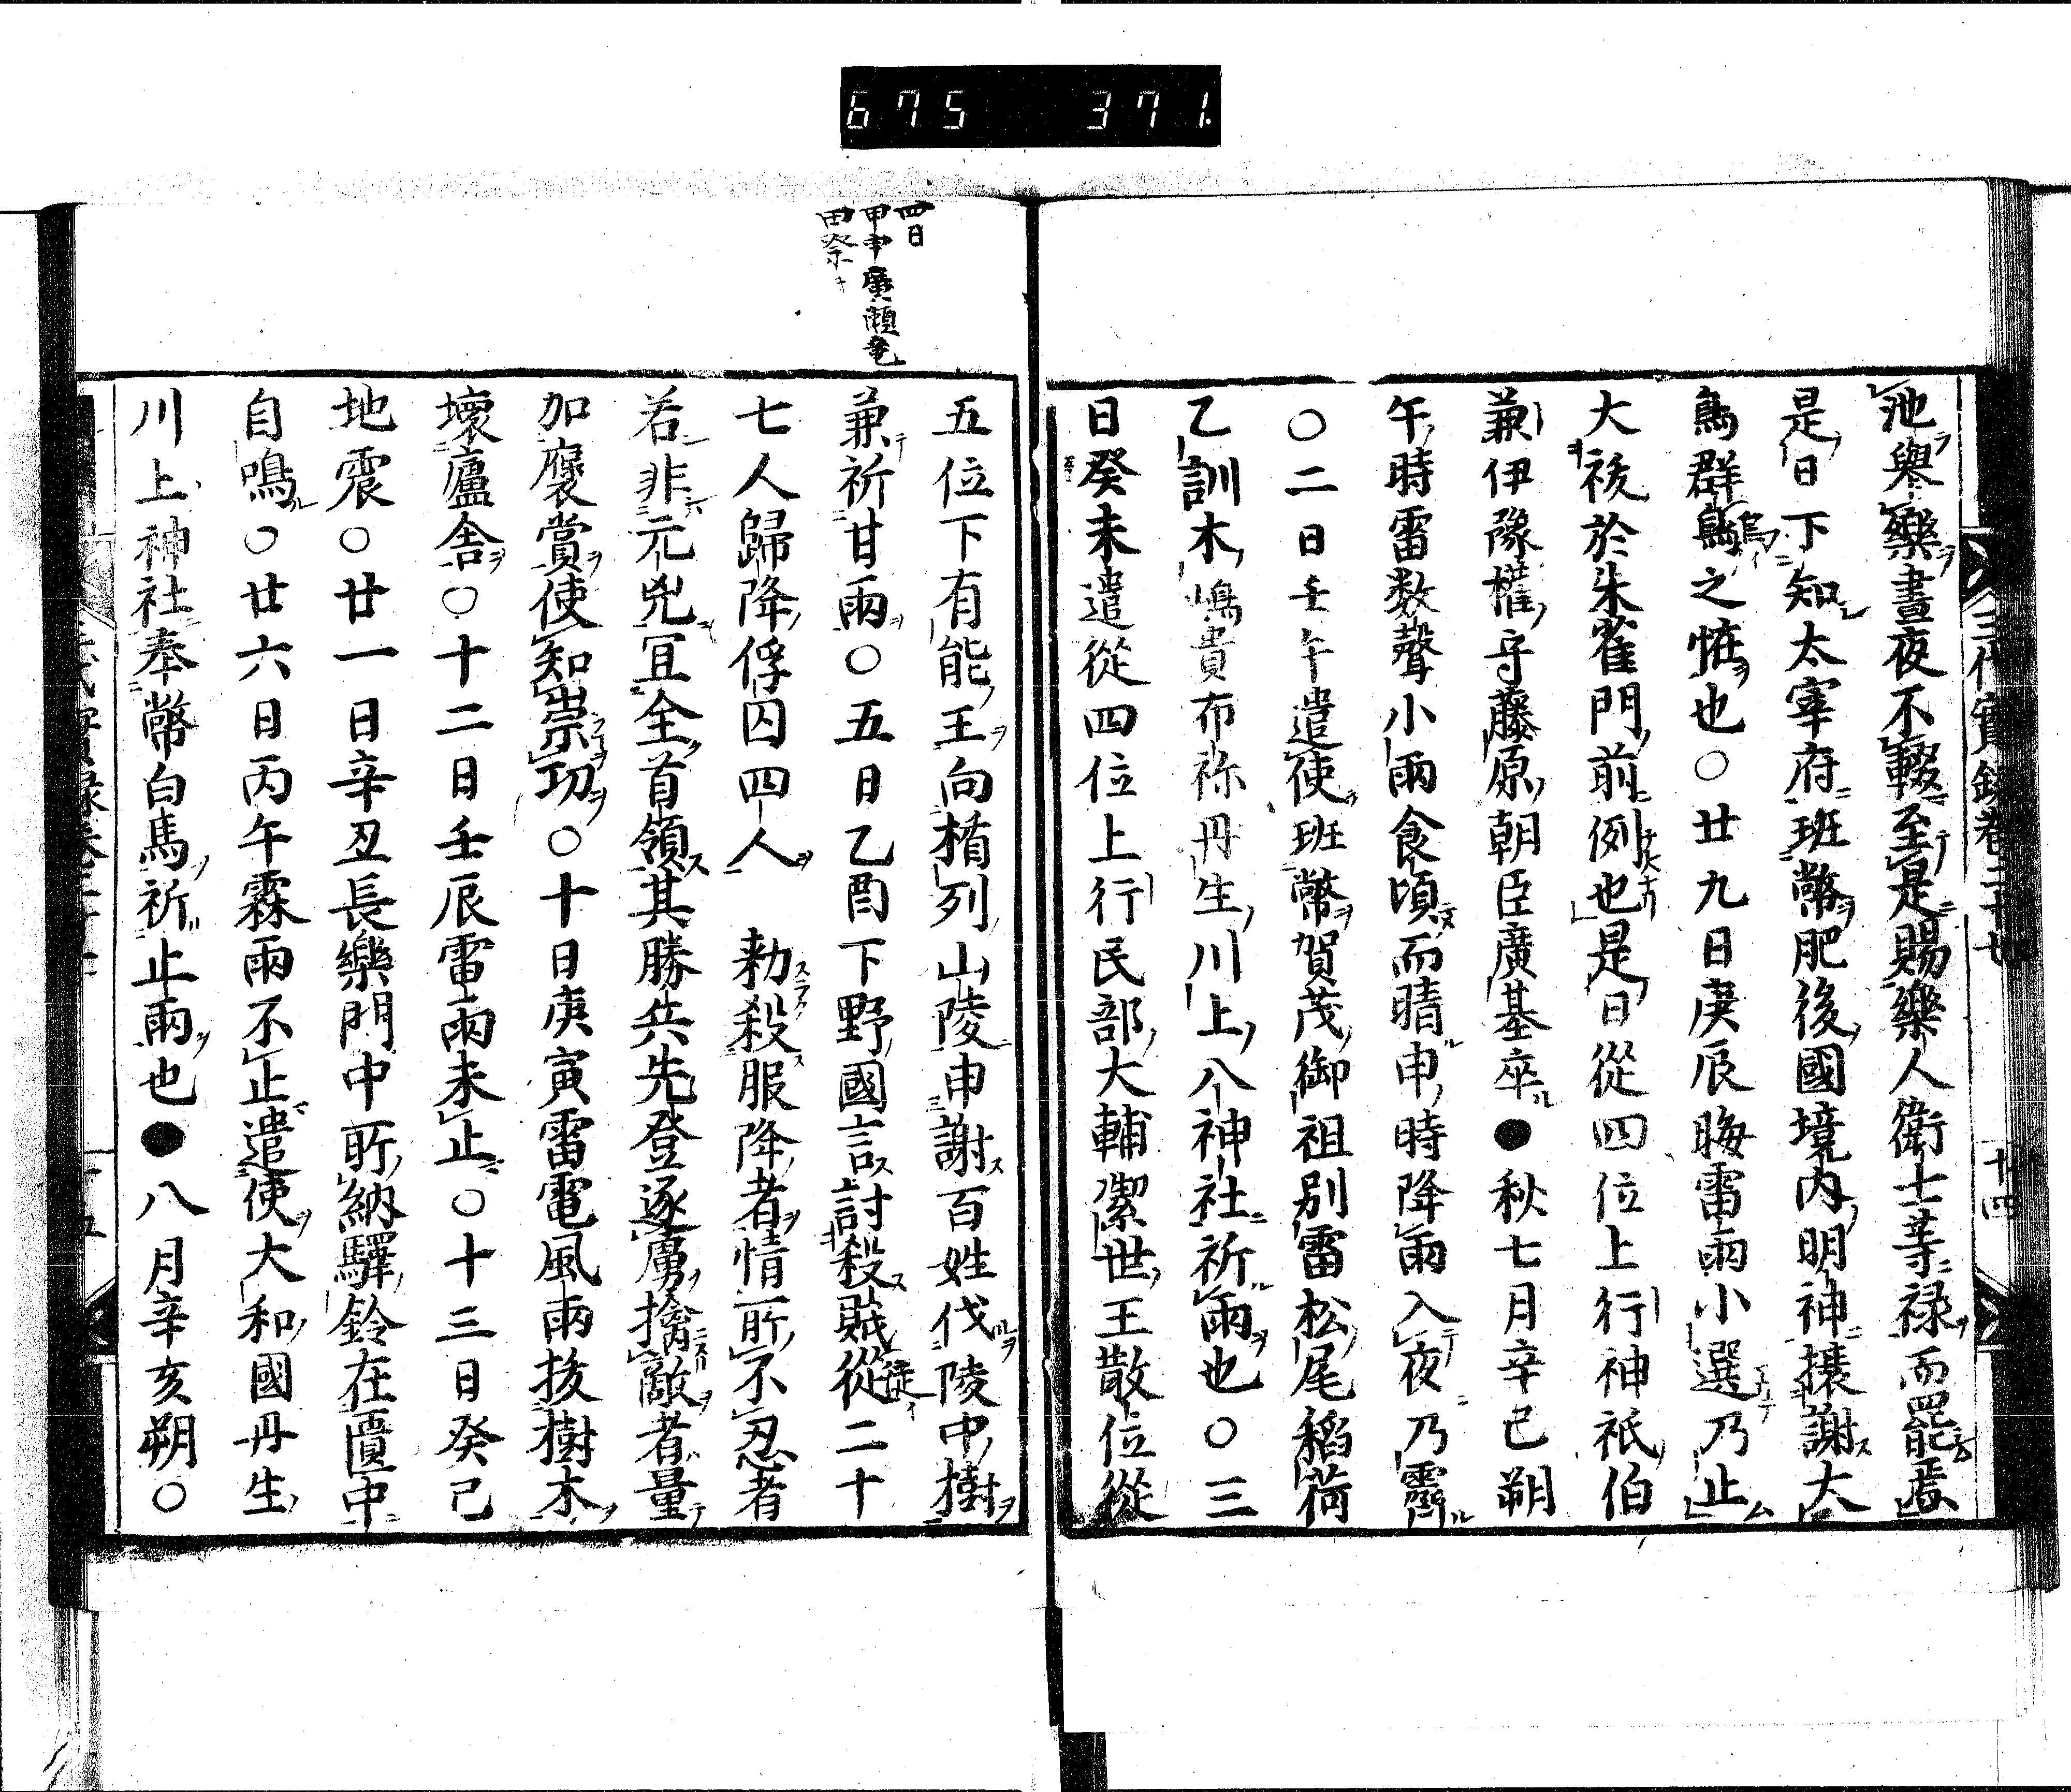 675 371.
三代實録卷二十七
十四
池舉樂晝夜不輟至是賜樂人衛士等禄而罷焉
是日下知太宰府班幣肥後國境内明神攘謝大
鳥群烏之恠也○廿九日庚辰晦雷雨小選乃止
大祓於朱雀門前例也是日從四位上行神祇伯
兼伊豫權守藤原朝臣廣基卒●秋七月辛巳朔
午時雷数聲小雨食頃而晴申時降雨入夜乃霽
○二日壬午遣使班幣賀茂御祖別雷松尾稻荷
乙訓木嶋貴布祢丹生川上八神社祈雨也○三
日癸未遣從四位上行民部大輔潔世王散位從
四日
甲申廣瀬竜
田祭
五位下有能王向楯列山陵申謝百姓伐陵中樹
兼祈甘雨○五日乙酉下野國言討殺賊從二十
七人歸降俘囚四人 勅殺服降者情所不忍者
若非元兇冝全首領其勝兵先登逐虜擒敵者量
加褒賞使知崇功○十日庚寅雷電風雨拔樹木
壞廬舎○十二日壬辰雷雨未止○十三日癸巳
地震○廿一日辛丑長樂門中所納驛鈴在匱中
自鳴○廿六日丙午霖雨不止遣使大和國丹生
川上神社奉幣白馬祈止雨也●八月辛亥朔○